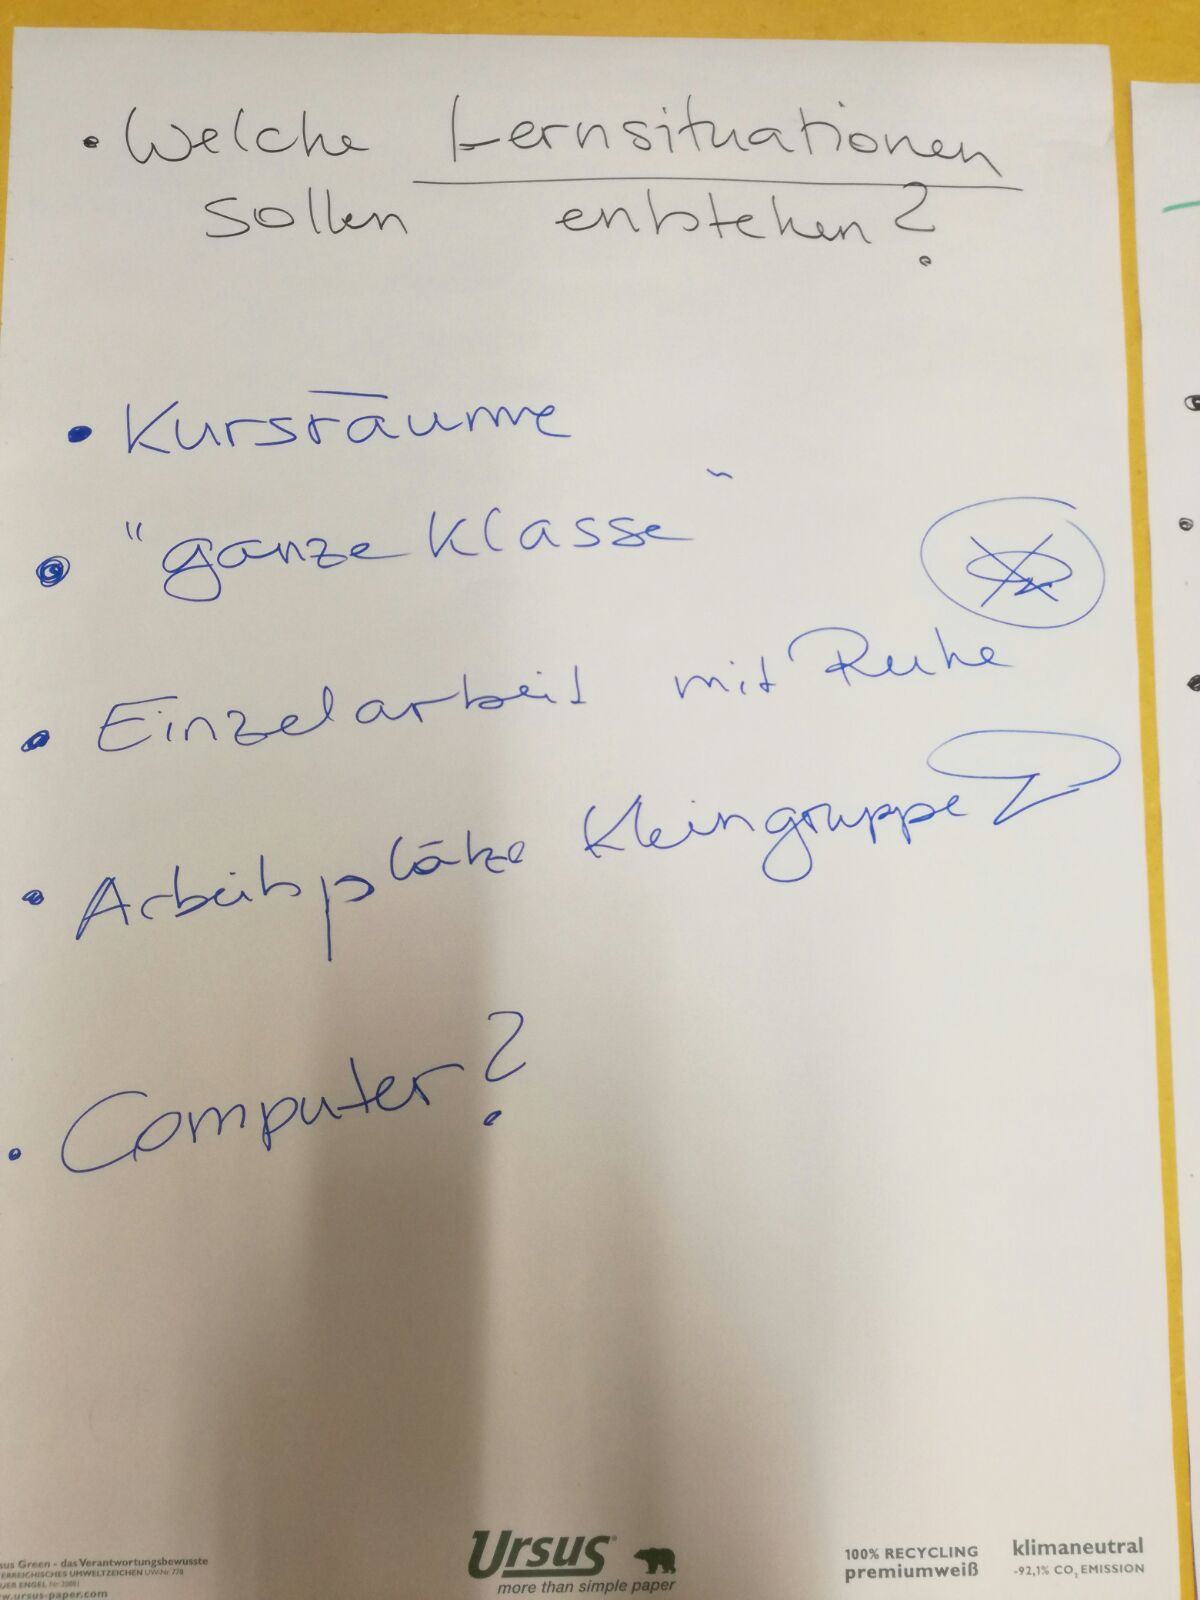 • Welche Lernsituationen
sollen entstehen?
• Kursräume
• "ganze Klasse"
• Einzelarbeit mit Ruhe
• Arbeitsplätze Kleingruppe
• Computer?
sus Green - das Verantwortungsbewusste
ERREICHISCHES UMWELTZEICHEN UW-Nr. 778
UER ENGEL
w.ursus-paper.com
Ursus
more than simple paper
100% RECYCLING
premiumweiß
klimaneutral
-92,1% CO₂ EMISSION